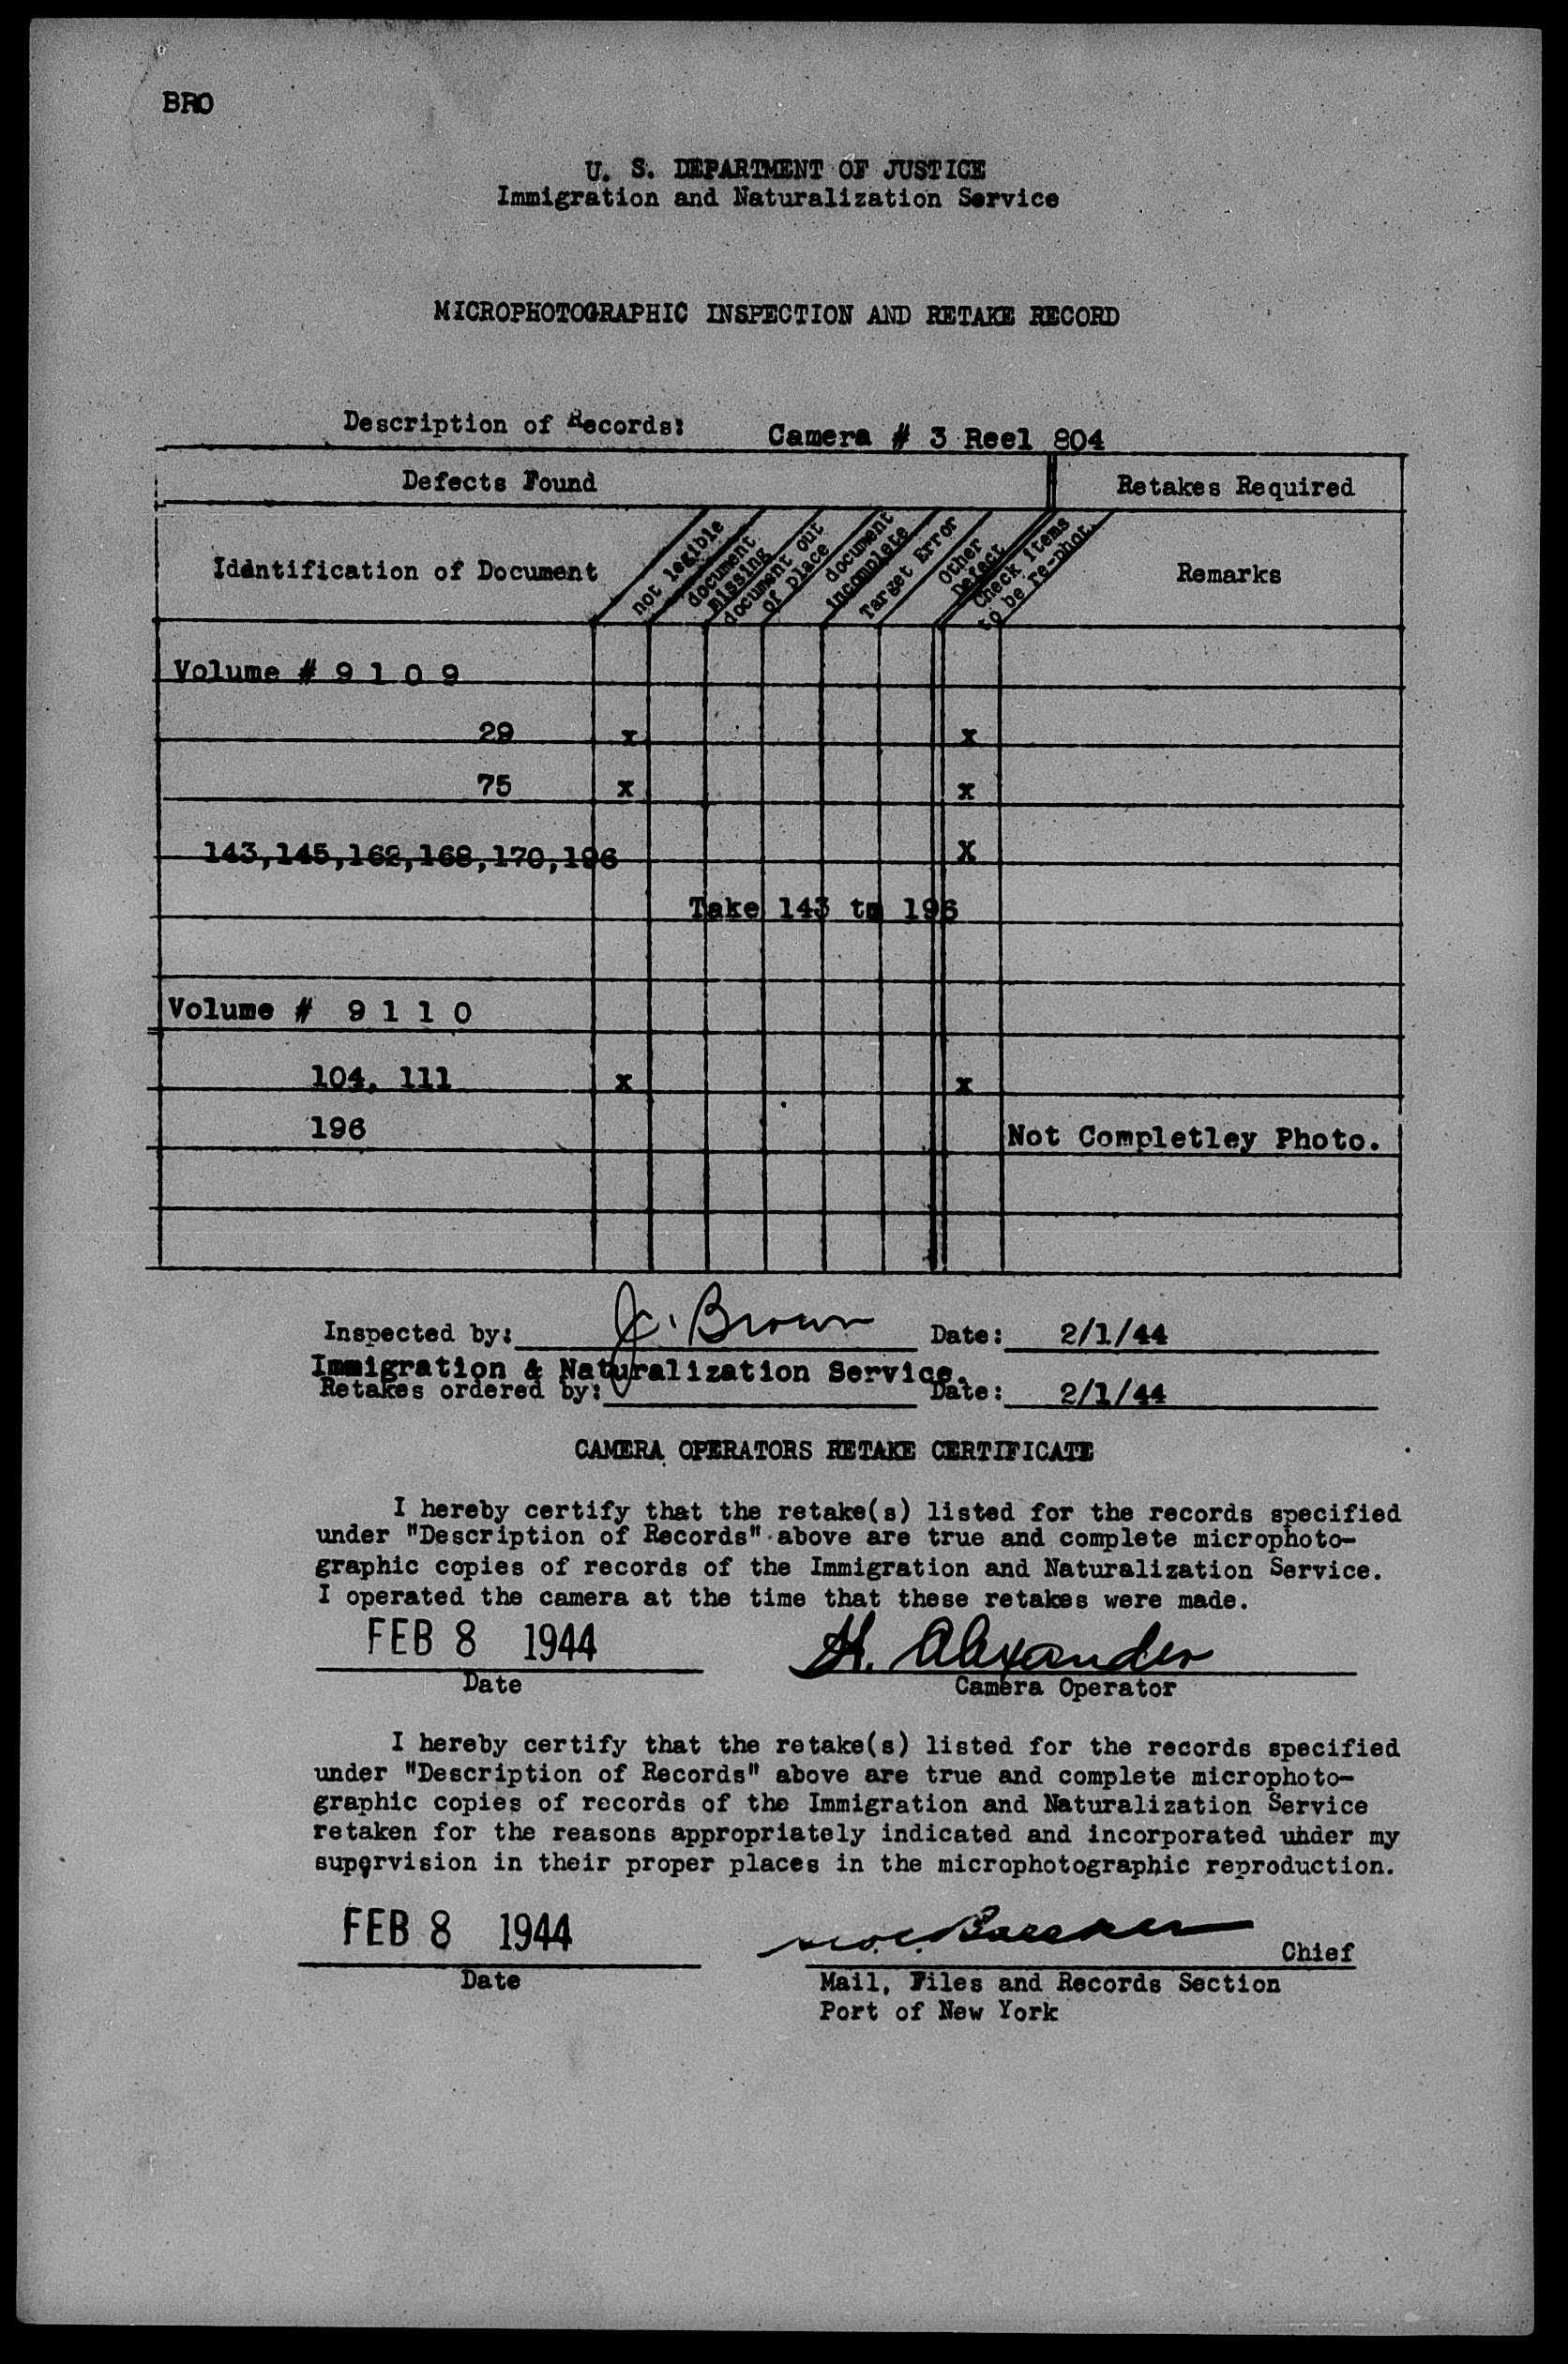 BRO
U. S. DEPARTMENT OF JUSTICE
Immigration and Naturalization Service
MICROPHOTOGRAPHIC INSPECTION AND RETAKE RECORD
Description of Records: Camera # 3 Reel 804
Defects Found Retakes Required
Idântification of Document not legible document missing document out of place document incomplete Target Error Other Defect Check items to be re-phot. Remarks
Volume # 9 1 0 9
29 x x
75 x x
143,145,162,168,170,196 X
Take 143 to 196
Volume # 9 1 1 0
104, 111 x x
196 Not Completley Photo.
Inspected by: J. Brown Date: 2/1/44
Immigration & Naturalization Service.
Retakes ordered by: Date: 2/1/44
CAMERA OPERATORS RETAKE CERTIFICATE
I hereby certify that the retake(s) listed for the records specified
under "Description of Records" above are true and complete microphoto-
graphic copies of records of the Immigration and Naturalization Service.
I operated the camera at the time that these retakes were made.
FEB 8 1944 H. Alexander
Date Camera Operator
I hereby certify that the retake(s) listed for the records specified
under "Description of Records" above are true and complete microphoto-
graphic copies of records of the Immigration and Naturalization Service
retaken for the reasons appropriately indicated and incorporated under my
supervision in their proper places in the microphotographic reproduction.
FEB 8 1944
Chief
Date Mail, Files and Records Section
Port of New York